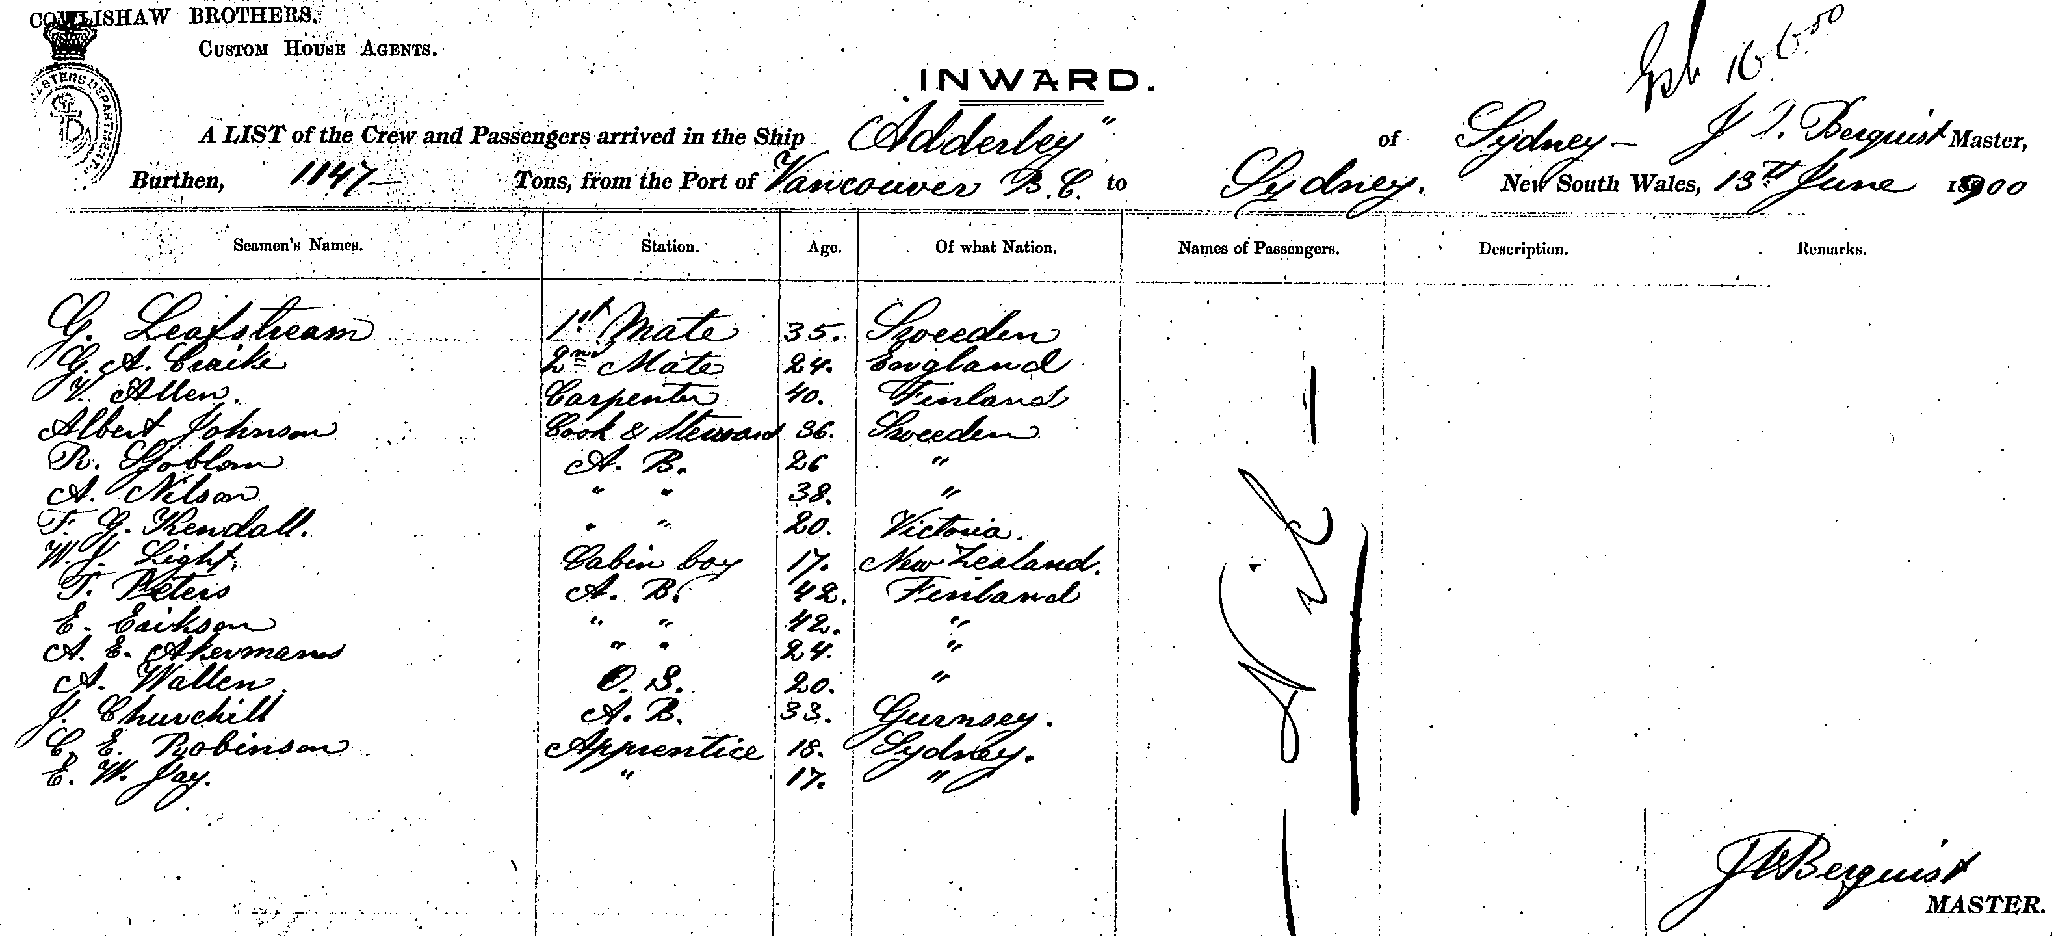 COWLISHAW BROTHERS.
CUSTOM HOUSE AGENTS.
INWARD.
A LIST of the Crew and Passengers arrived in the Ship "Adderley" of Sydney — J. Berquist Master,
Burthen, 1147 — Tons, from the Port of Vancouver B.C. to Sydney. New South Wales, 13th June 1900
Seamen's Names. Station. Age. Of what Nation. Names of Passengers. Description. Remarks.
G. Leafstream 1st Mate 35. Sweeden
G. A. Cracke 2nd Mate 24. England
V. Allen. Carpenter 40. Finland
Albert Johnson Cook & Steward 36. Sweeden
R. Sjoblom A. B. 26 "
A. Nilson " " 38. "
F. G. Kendall. " " 20. Victoria.
W. J. Light. Cabin boy 17. New Zealand.
T. Peters A. B. 42. Finland
E. Erikson " " 42. "
A. E. Akermans " " 24. "
A. Wallen. O. S. 20. "
J. Churchill A. B. 33. Gurnsey.
C. E. Robinson Apprentice 18. Sydney.
E. W. Jay. " 17. "
— Nil —
Berquist
MASTER.